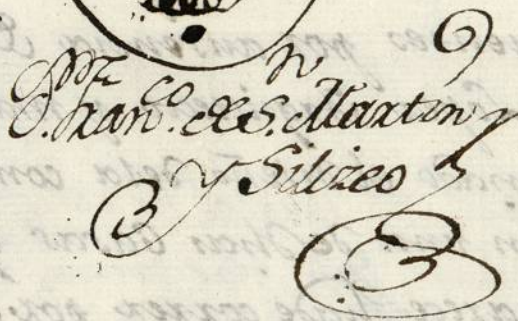 Fran.co de S.n Martin
Y Silizeo